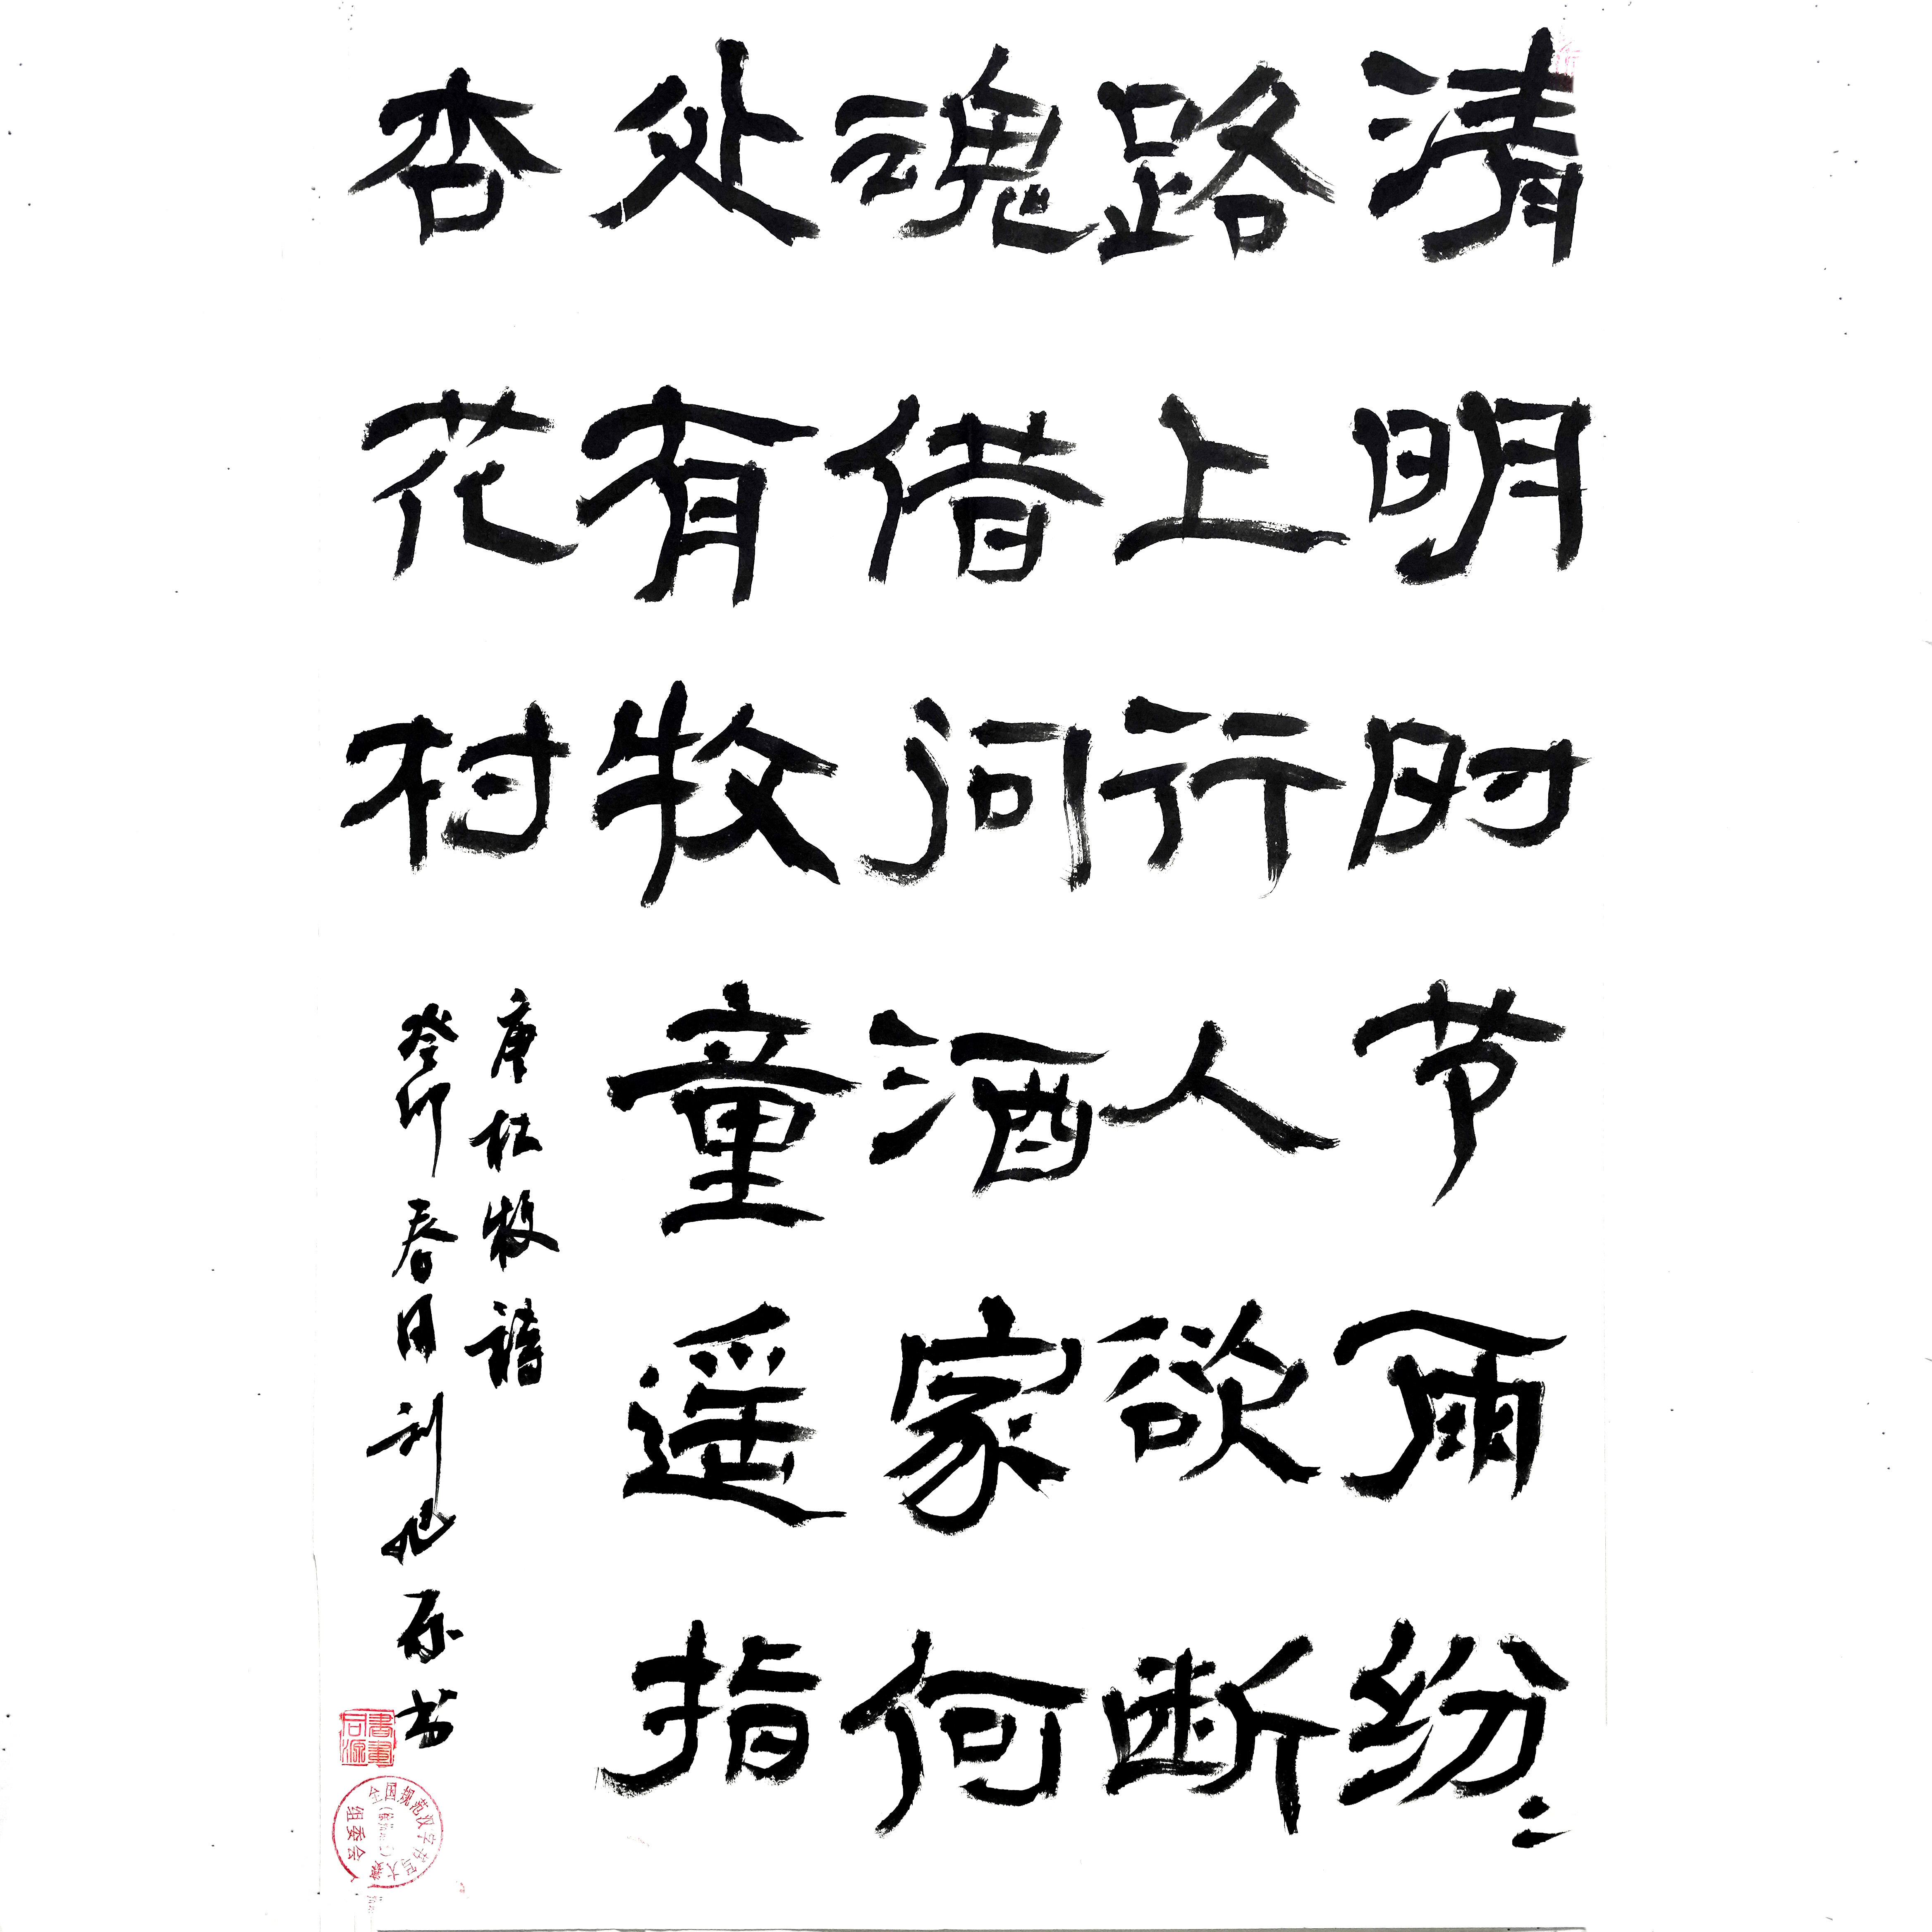 清明时节雨纷〻
路上行人欲断
魂借问酒家何
处有牧童遥指
杏花村
唐杜牧诗
癸卯春日刘原书
書畫同源
全国规范汉字书写大赛
组委会